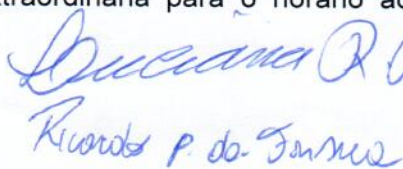 xtraordinária para o horário ac
Luciana R
Ricardo P. da Fonseca